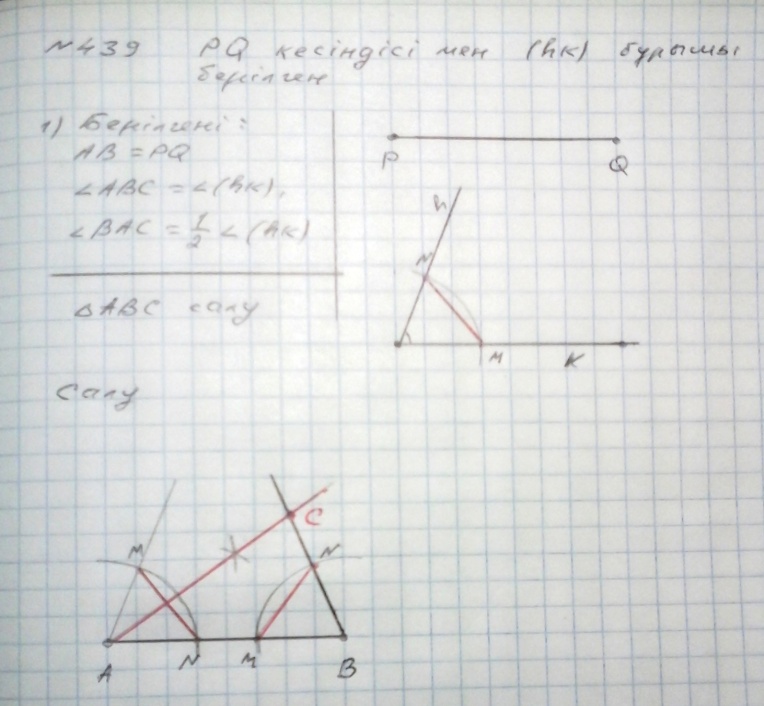 №439 PQ кесіндісі мен (hk) бұрышы
берілген
1) Берілгені:
AB = PQ
∠ABC = ∠(hk),
∠BAC = 1/2 ∠(hk)
△ABC салу
P
Q
h
N
M
K
Салу
C
M
N
A
N
M
B